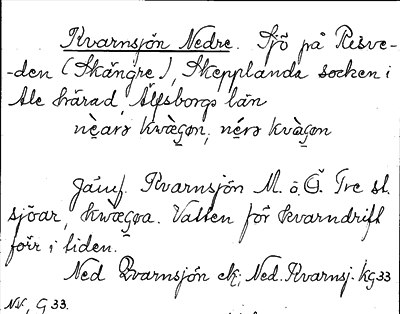 Kvarnsjön Nedre. Sjö på Risve-
-den (Skängre), Skepplanda socken i
Ale härad, Älfsborgs län
nè̱arə kwæ̀gən, né̱rə kvàgən
Jämf. Kvarnsjön M. o. Ö. Tre st.
sjöar, kwæ̀gəa. Vatten för kvarndrift
förr i tiden.
Ned Qvarnsjön ek; Ned. Kvarnsj. kg33
NV., G 33.